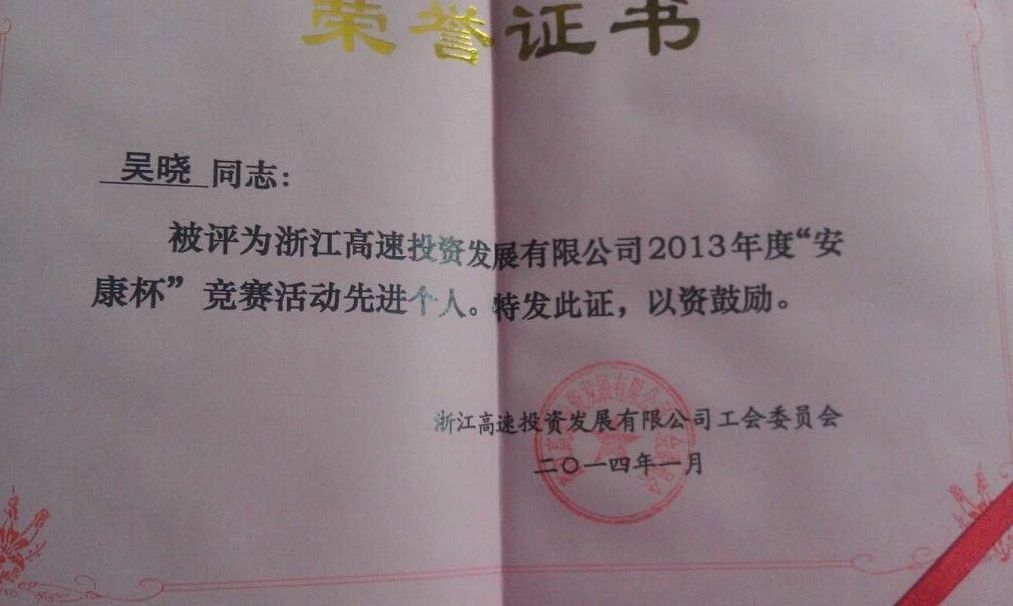 荣誉证书
吴晓 同志：
被评为浙江高速投资发展有限公司2013年度“安
康杯”竞赛活动先进个人。特发此证，以资鼓励。
浙江高速投资发展有限公司工会委员会
二〇一四年一月